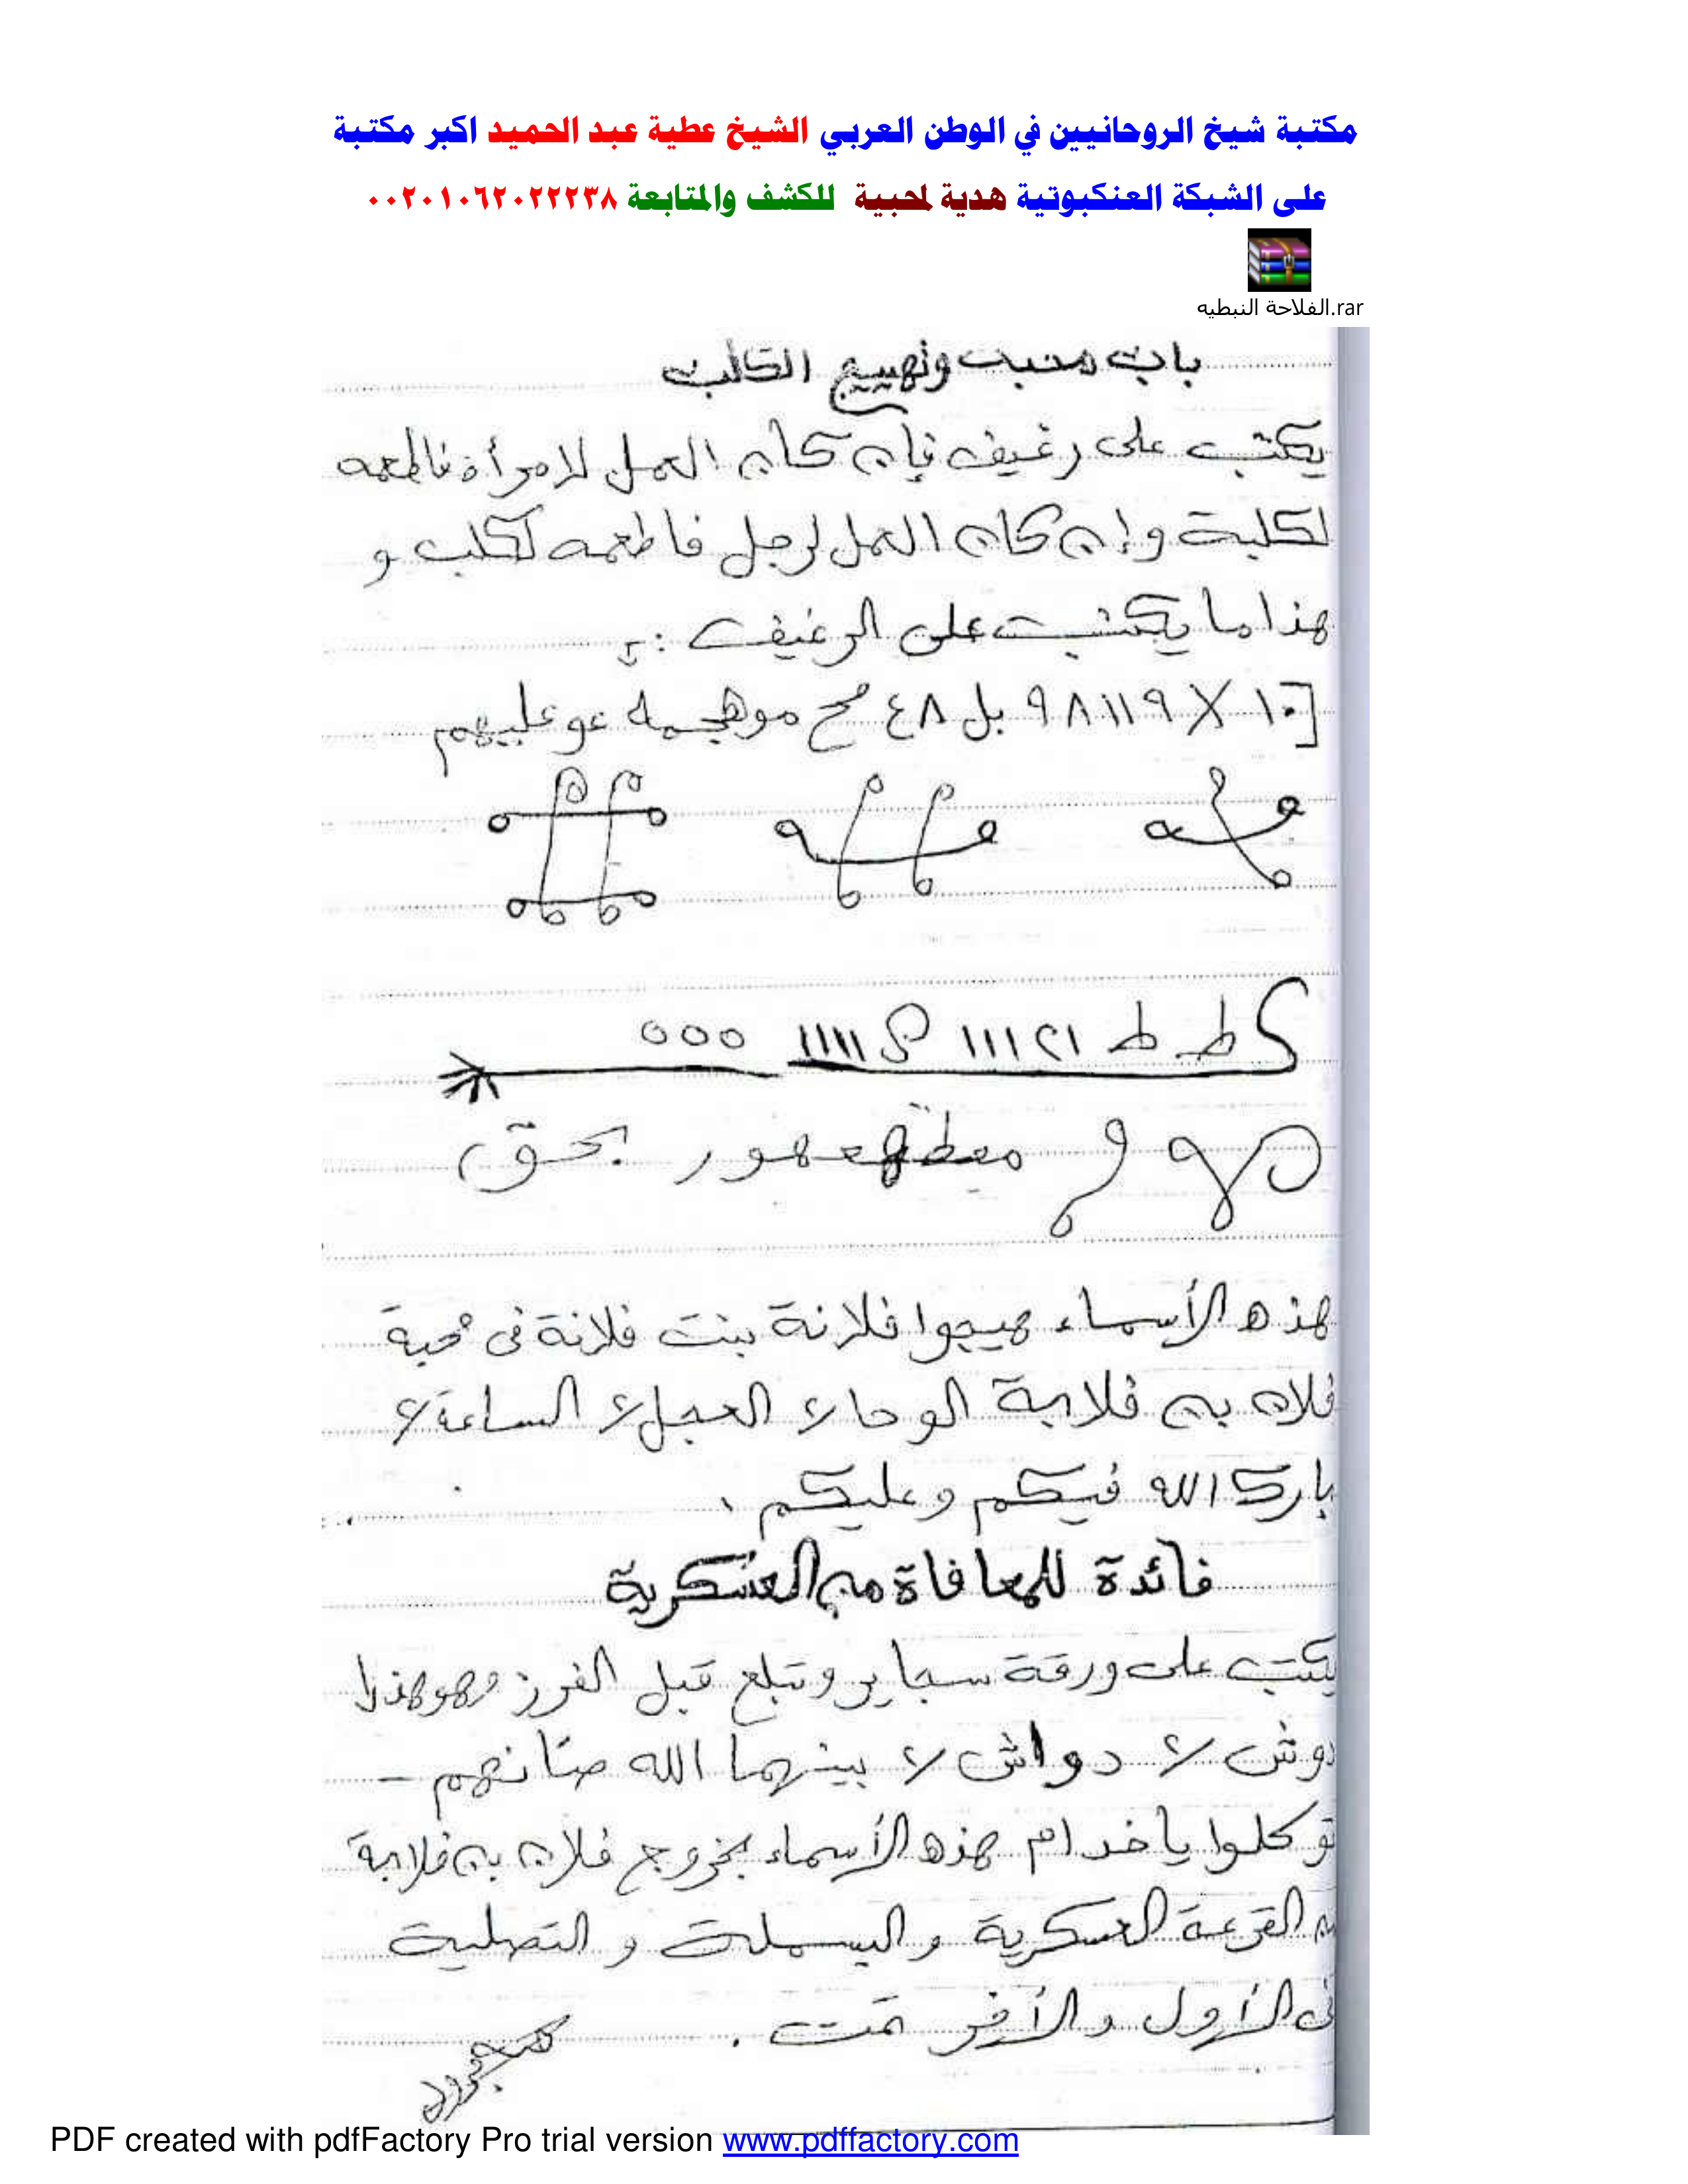 مكتبة شيخ الروحانيين في الوطن العربي الشيخ عطية عبد الحميد اكبر مكتبة
على الشبكة العنكبوتية هدية لمحبية للكشف والمتابعة ٠٠٢٠١٠٦٢٠٢٢٢٣٨
الفلاحة النبطيه.rar
باب محبت وتهييج الكلب
يكتب على رغيف فإن كان العمل لامرأة فاطعمه
لكلبة وإن كان العمل لرجل فاطعمه لكلب و
هذا ما يكتب على الرغيف :-
٩٨١١٩ X ١٠] بل ٤٨ مح عو عليهم
ط ط ١١١ ١١١١ ٥٥٥
بحق
هذه الأسماء هيجوا فلانة بنت فلانة فى محبة
فلان بن فلانة الوحا٢ العجل٢ الساعة٢
بارك الله فيكم وعليكم .
فائدة للمعافاة من العسكرية
يكتب على ورقة سجاير وتبلع قبل الفرز وهو هذا
دوش ٢ دواش ٢ بينهما الله صانهم -
توكلوا ياخدام هذه الأسماء بخروج فلان بن فلانة
من القرعة العسكرية والبسملت و التصليت
فى الأول والأخر تمت .
PDF created with pdfFactory Pro trial version www.pdffactory.com